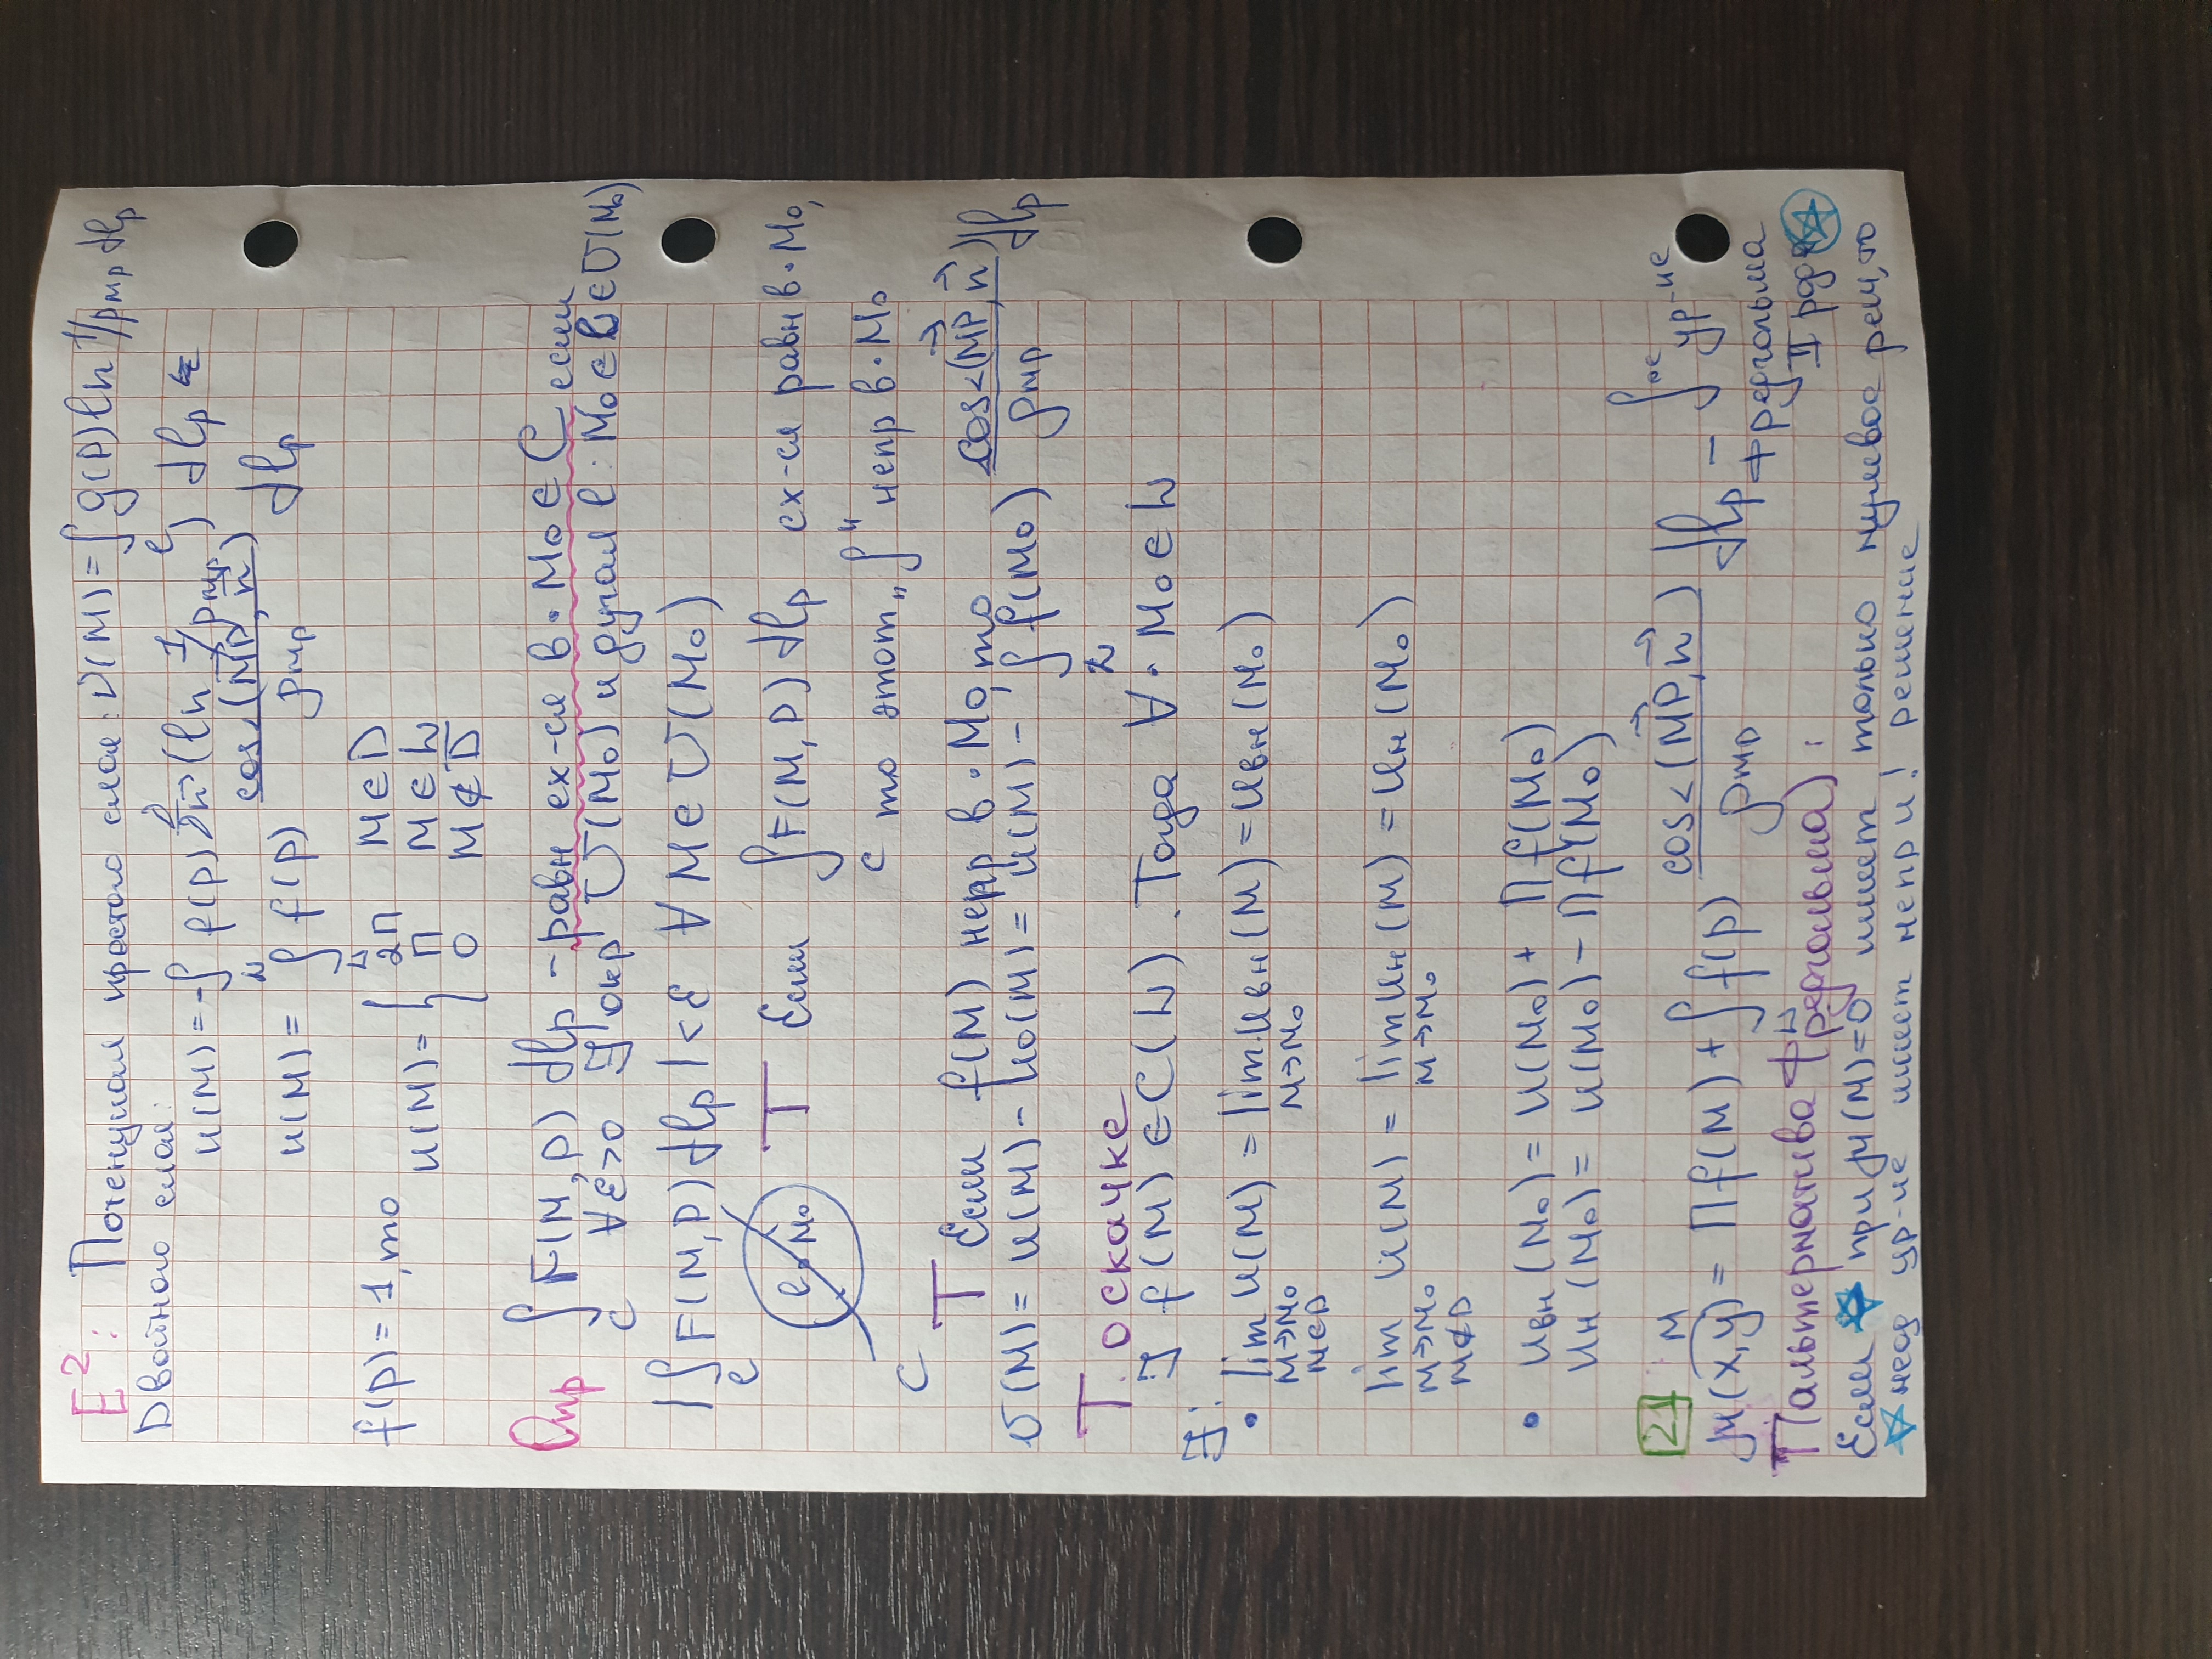 E²: Потенциал простого слоя: ν(M) = ∫_C g(P) ln 1/ρ_MP dl_P
Двойного слоя:
u(M) = -∫_L f(P) ∂/∂n (ln 1/ρ_MP) dl_P
u(M) = ∫_L f(P) cos<(MP, n)/ρ_MP dl_P
f(P) = 1, то
u(M) = { 2π M∈D
π M∈L
0 M∉D̅
Опр ∫_C F(M,P) dl_P - равн сх-ся в · M₀∈C если
∀ε>0 ∃ окр U(M₀) и дугал l: M₀∈l∈U(M₀)
|∫_C F(M,P) dl_P| < ε ∀ M∈U(M₀)
l M₀
C
T Если ∫_C F(M,P) dl_P сх-ся равн в · M₀,
то этот „∫" непр в · M₀
T Если f(M) непр в · M₀, то
υ(M) = u(M) - u₀(M) = u(M) - ∫_L f(M₀) cos<(MP, n)/ρ_MP dl_P
T. о скачке
∃ f(M)∈C(L). Тогда ∀ · M₀∈L
∃:
• lim u(M) = lim u вн (M) = u вн (M₀)
M→M₀ M∈D M→M₀
lim u(M) = lim u н (M) = u н (M₀)
M→M₀ M∉D M→M₀
• u вн (M₀) = u(M₀) + π f(M₀)
u н (M₀) = u(M₀) - π f(M₀)
21 : M
μ(x,y) = π f(M) + ∫_L f(P) cos<(MP, n)/ρ_MP dl_P - ∫ ое ур-ие
Фредгольма
II рода ☆
T (альтернатива Фредгольма):
Если ☆ при μ(M)=0 имеет только нулевое реш, то
☆ неод ур-ие имеет непр и ! решение